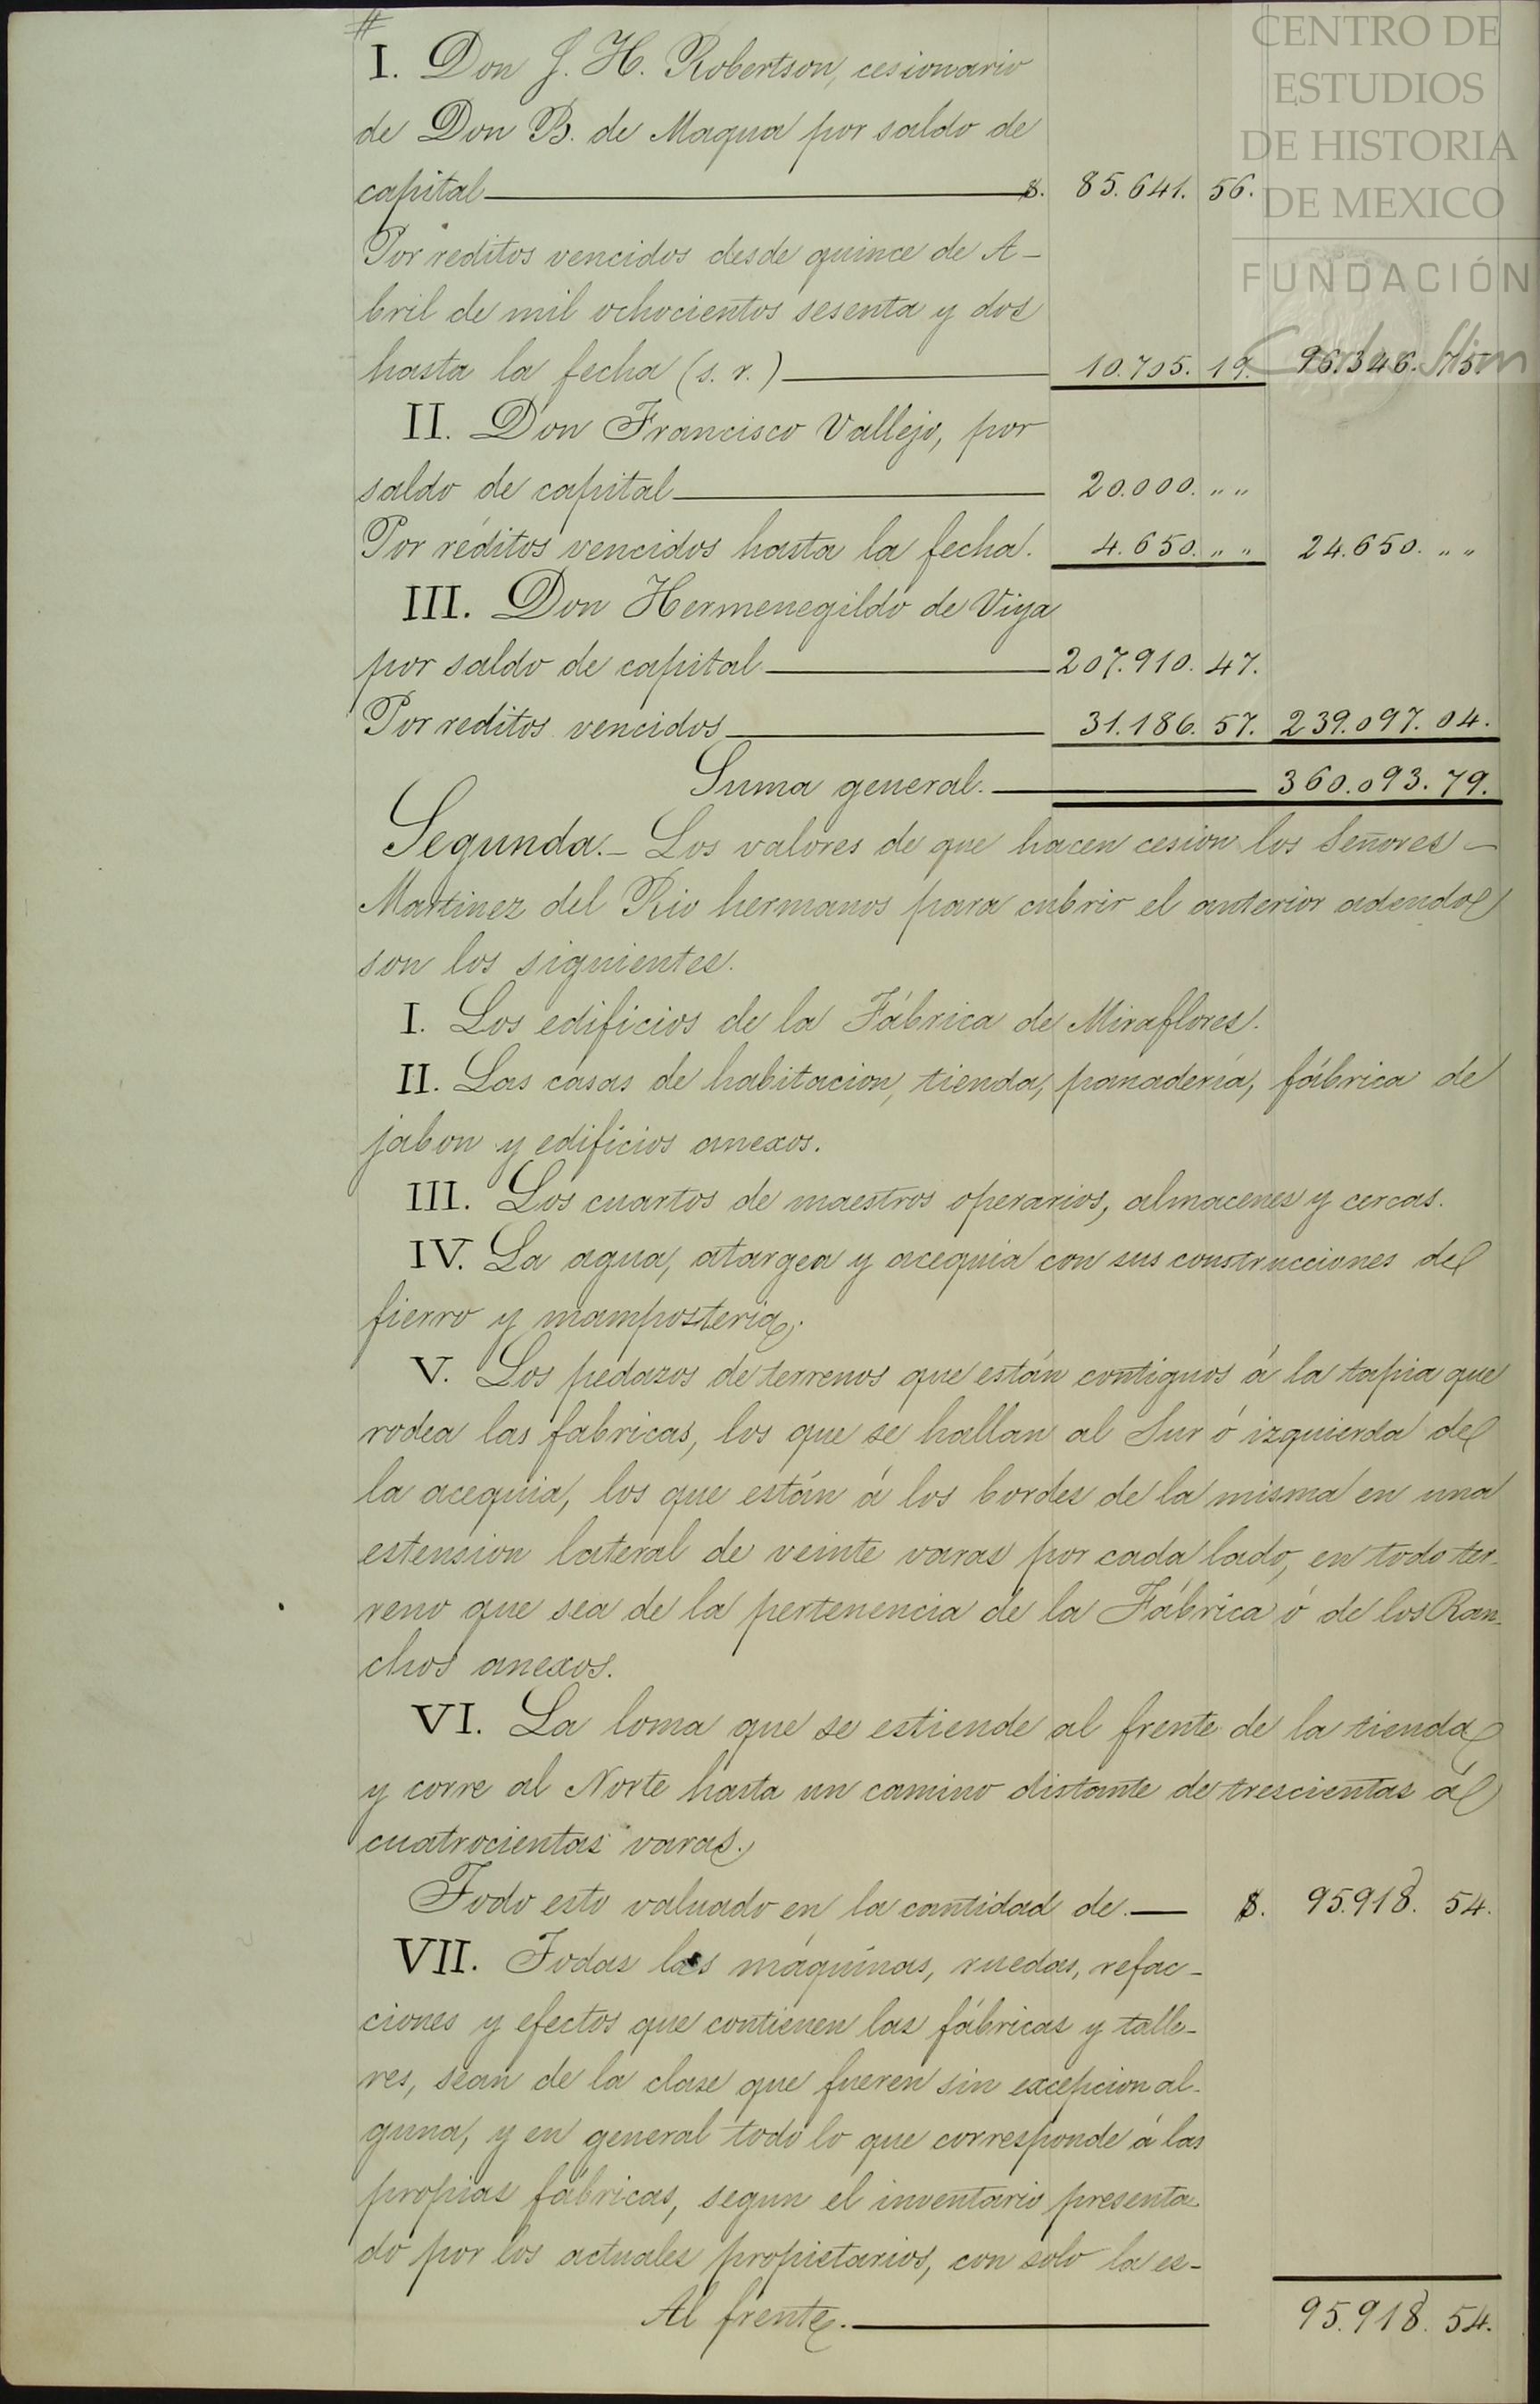 #
I. Don J. H. Robertson, cesionario
de Don B. de Maqua por saldo de
capital $. 85.641. 56.
Por reditos vencidos desde quince de A-
bril de mil ochocientos sesenta y dos
hasta la fecha (s. r.) 10.705. 19. 96.346. 75.
II. Don Francisco Vallejo, por
saldo de capital 20.000. " "
Por réditos vencidos hasta la fecha. 4.650. " " 24.650. " "
III. Don Hermenegildo de Viya
por saldo de capital 207.910. 47.
Por reditos vencidos 31.186. 57. 239.097. 04.
Suma general. 360.093. 79.
Segunda.- Los valores de que hacen cesion los Señores -
Martinez del Rio hermanos para cubrir el anterior adeudo
son los siguientes.
I. Los edificios de la Fábrica de Miraflores.
II. Las casas de habitacion, tienda, panadería, fábrica de
jabon y edificios anexos.
III. Los cuartos de maestros operarios, almacenes y cercas.
IV. La agua, atargea y acequia con sus construcciones de
fierro y mamposteria.
V. Los pedazos de terrenos que están contiguos á la tapia que
rodea las fabricas, los que se hallan al Sur ó izquierda de
la acequia, los que están á los bordes de la misma en una
estension lateral de veinte varas por cada lado, en todo ter-
reno que sea de la pertenencia de la Fábrica ó de los Ran-
chos anexos.
VI. La loma que se estiende al frente de la tienda
y corre al Norte hasta un camino distante de trescientas á
cuatrocientas varas.
Todo esto valuado en la cantidad de. $. 95.918. 54.
VII. Todas las máquinas, ruedas, refac-
ciones y efectos que contienen las fábricas y talle-
res, sean de la clase que fueren sin excepcion al-
guna, y en general todo lo que corresponde á las
propias fábricas, segun el inventario presenta-
do por los actuales propietarios, con solo la es-
Al frente. 95.918. 54.
CENTRO DE
ESTUDIOS
DE HISTORIA
DE MEXICO
FUNDACIÓN
Carlos Slim